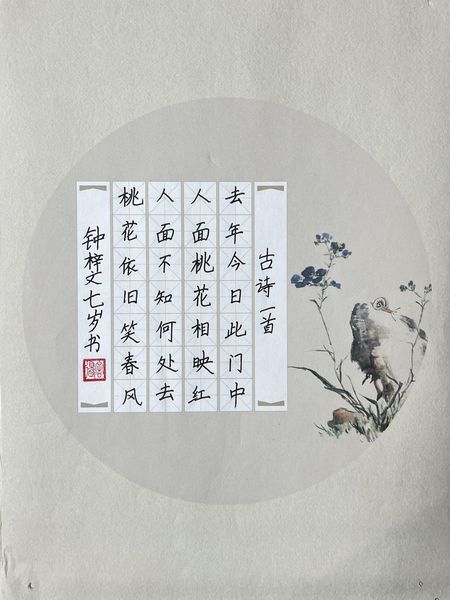 古诗一首
去年今日此门中
人面桃花相映红
人面不知何处去
桃花依旧笑春风
钟梓文七岁书